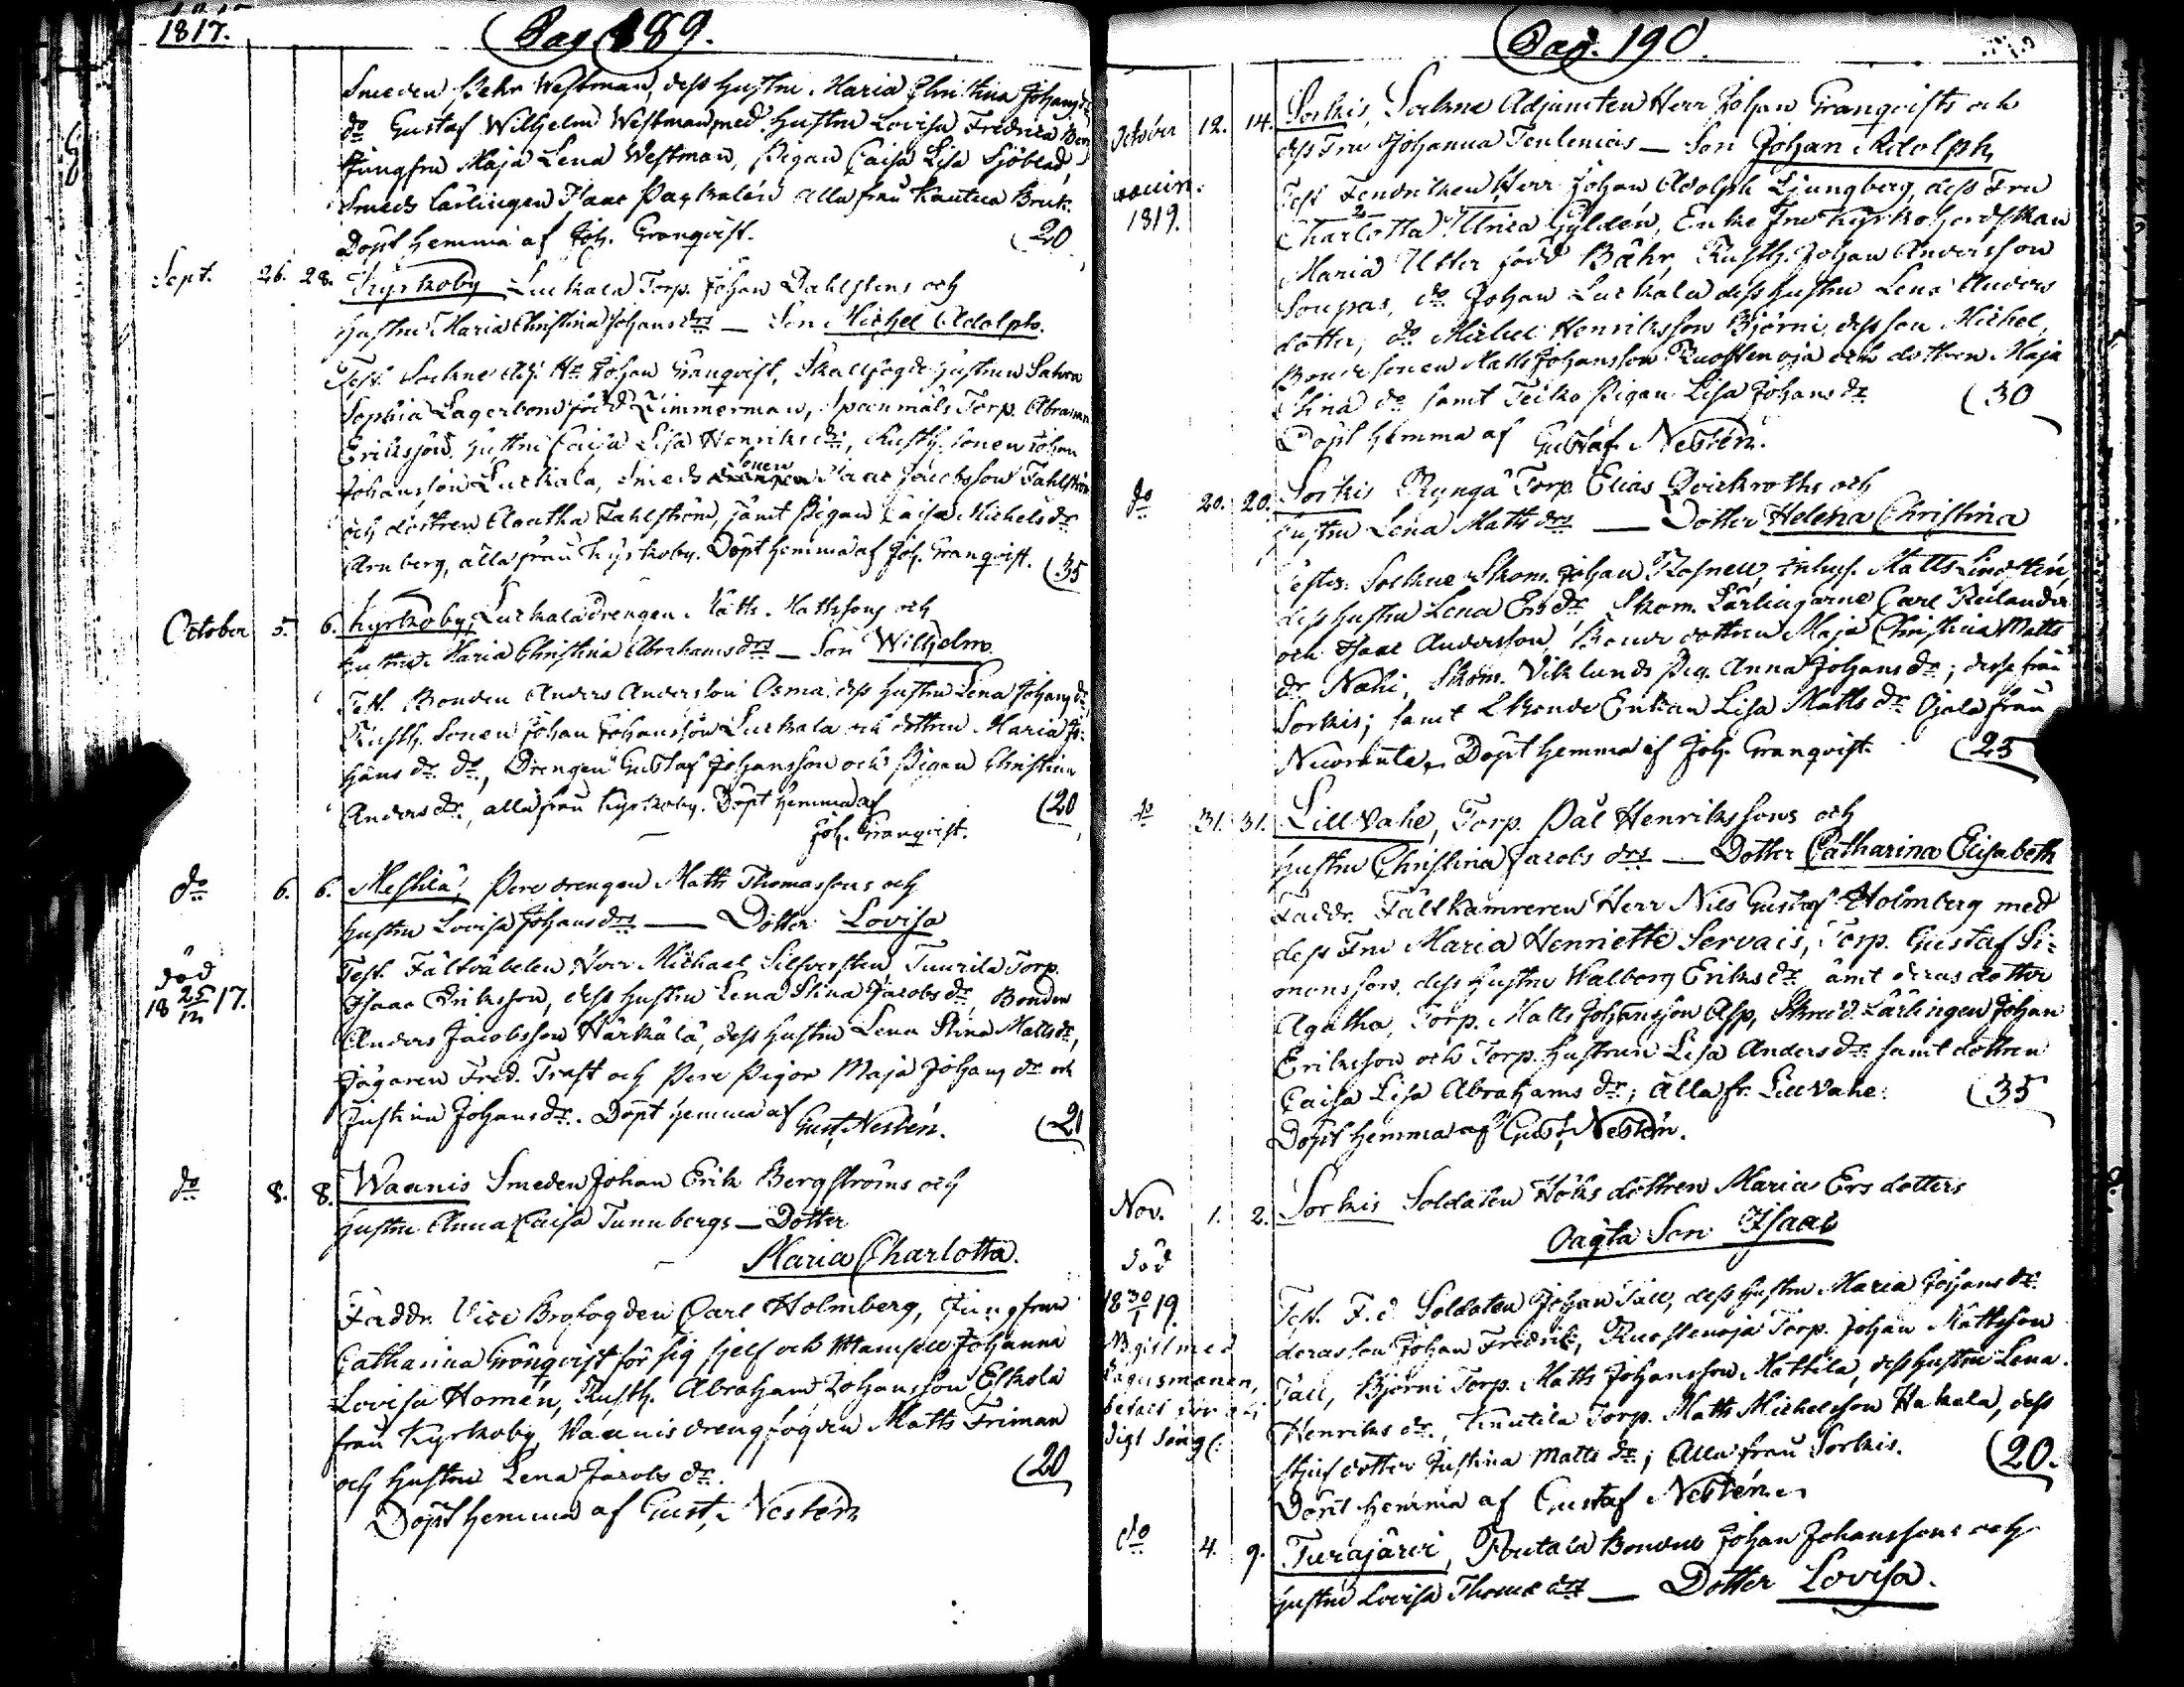 1817.
Pag 189.
Smeden Pehr Westman, dess hustru Maria Christina Johans
do Gustaf Wilhelm Westman med hustru Lovisa Fredrica
Jungfru Maja Lena Westman, Pigan Caisa Lisa Sjöblad,
Smeds Lärlingen Isaac alla från Kautua Bruk.
Döpt hemma af Joh. Granqvist. (20
Sept. 26. 28. Kyrkoby Luckala Torp. Johan Dahlstens och
hustru Maria Christina Johans drs — Son Michel Adolph.
Test. Sockne Adj. Hr Johan Granqvist, Skallfogde hustrun
Sophia Lagerbom född Zimmerman, Spannmåls Torp. Abraham
Eriksson hustru Caisa Lisa Henriks dr, Rusth. sonen Johan
Johansson Luckala, Smeds sonen Isaac Jacobsson Fahlström
och dottren Agatha Fahlström, samt Pigan Caisa Michels dr
Arnberg, alla från Kyrkoby. Döpt hemma af Joh. Granqvist. (35
October 5. 6. Kyrkoby, Luckala drengen Matts Mattssons och
hustru Maria Christina Abrahams drs — Son Wilhelm.
Test. Bonden Anders Andersson Osma, dess hustru Lena Johans dr,
Rusth. Sonen Johan Johansson Luckala och dottren Maria Jo-
hans dr do, Drengen Gustaf Johansson och Pigan Christina
Anders dr, alla från Kyrkoby. Döpt hemma af (20
Joh. Granqvist.
do 6. 6. Meskilä, Pere drengen Matts Thomassons och
hustru Lovisa Johans drs — Dotter Lovisa
död
18 25/12 17.
Test. Fältväbelen Herr Michael Silfversten, Tuurila Torp.
Isaac Eriksson, dess hustru Lena Stina Jacobs dr, Bonden
Anders Jacobsson Härkälä, dess hustru Lena Stina Matts dr,
Jägaren Fred. Trast och Pere Pigor Maja Johans dr och
Justina Johans dr. Döpt hemma af Gust. Nestén. (20
do 8. 8. Waanis Smeden Johan Erik Bergströms och
hustru Anna Caisa Tunnbergs — Dotter
Maria Charlotta.
Faddr. Vice Brofogden Carl Holmberg, Jungfrun
Catharina Grönqvist för sig sjelf och Mamsell Johanna
Lovisa Homén, Rusth. Abraham Johansson Eskola
från Kyrkoby, Waanis drengfogden Matts Friman
och hustru Lena Jacobs dr. (20
Döpt hemma af Gust. Nestén
Pag. 190.
October 12. 14. Sorkis, Sockne Adjuncten Herr Johan Granqvists och
dess Fru Johanna Tenlenius — Son Johan Adolph,
1819.
Test Fendriken Herr Johan Adolph Ljungberg, dess Fru
Charlotta Ulrica Gyldén, Enke Fru Kyrkoherdskan
Maria Utter född Bähr, Rusth. Johan Andersson
Soupas, do Johan Luckala dess hustru Lena Anders
dotter, do Michel Henriksson Björni, dess son Michel,
Bonde sonen Matts Johansson Ruostenoja och dottren Maja
Stina do samt Teiko Pigan Lisa Johans dr (30
Döpt hemma af Gustaf Nestén.
do 20. 20. Sorkis Rynga Torp. Elias Qvickroths och
hustru Lena Matts drs — Dotter Helena Christina
Testes: Sockne Skom. Johan Rosnell, Inhys. Matts Lindsten,
dess hustru Lena Ers dr, Skom. Lärlingarne Carl Relander
och Isaac Andersson, Bonde dottren Maja Christina Matts
dr Nahi, Skom. Viklunds Pig. Anna Johans dr; desse från
Sorkis; samt Enkan Lisa Matts dr Ojala från
Döpt hemma af Joh. Granqvist. (25
do 31. 31. Lill Vahe, Torp. Pål Henrikssons och
hustru Christina Jacobs drs — Dotter Catharina Elisabeth
Faddr. Fältkamreren Herr Nils Gustaf Holmberg med
dess Fru Maria Henriette Servais, Torp. Gustaf Si-
monsson, dess hustru Walborg Eriks dr samt deras dotter
Agatha, Torp. Matts Johansson Asp, Skredd. Lärlingen Johan
Eriksson och Torp. hustrun Lisa Anders dr samt dottren
Caisa Lisa Abrahams dr; Alla fr. Lillvahe. (35
Döpt hemma af Gust. Nestén.
Nov. 1. 2. Sorkis Soldaten Höks dottren Maria Ers dotters
Oägta Son Isaac
död
18 30/1 19.
Test. F.d. Soldaten Johan Tall, dess hustru Maria Johans dr
deras son Johan Fredrik, Ruostenoja Torp. Johan Mattsson
Tall, Björni Torp. Matts Johansson Mattila, dess hustru Lena
Henriks dr, Knutila Torp. Matts Michelsson Hakala, dess
stjuf dotter Justina Matts dr; Alla från Sorkis. (20.
Döpt hemma af Gustaf Nestén
do 4. 9. Turajärvi, Poutala Bonden Johan Johanssons och
hustru Lovisa Thomæ drs — Dotter Lovisa.